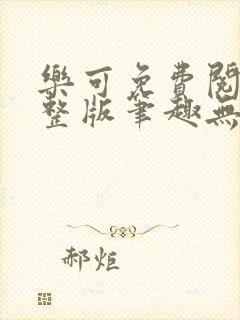 樂可免費閱
整版筆趣無
郝炬